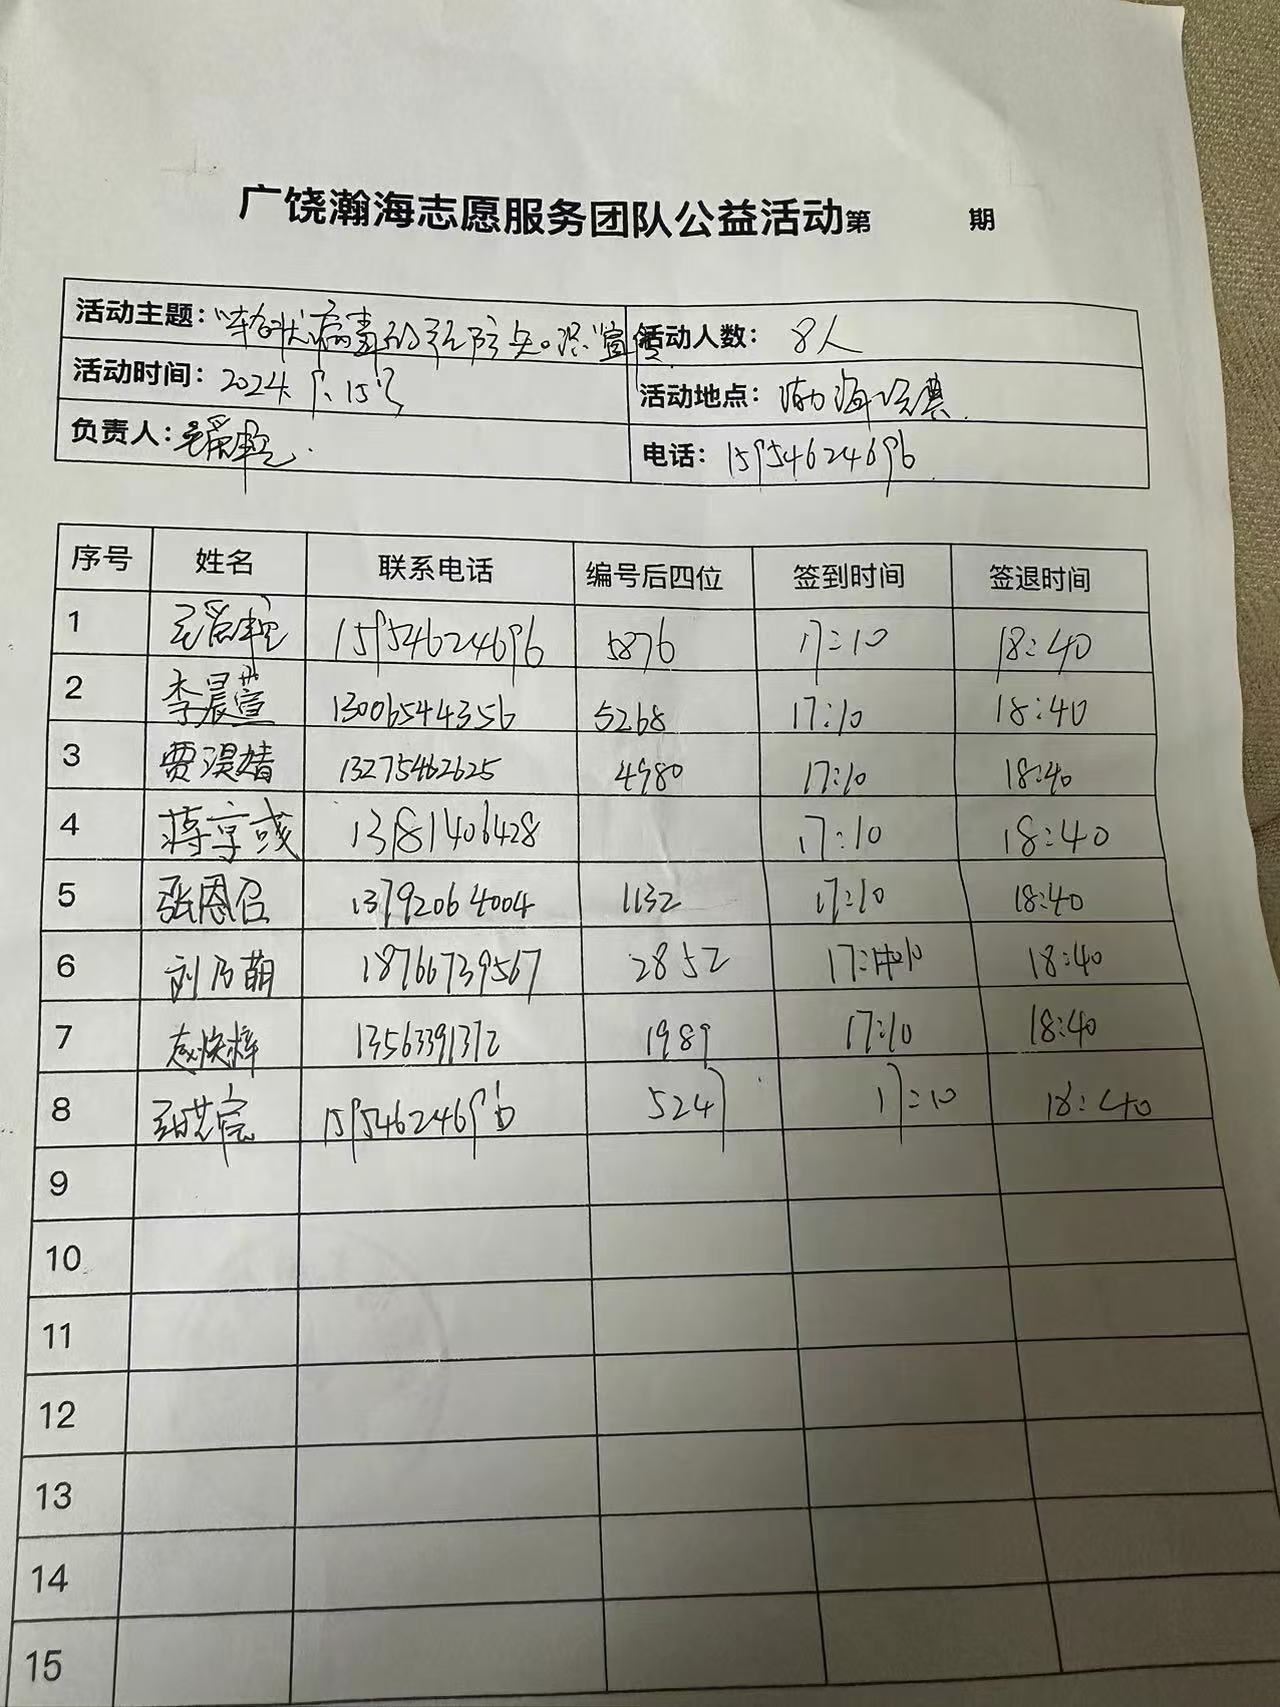 广饶瀚海志愿服务团队公益活动第 期
活动主题：“轮状病毒的预防知识”宣传 活动人数： 8人
活动时间：2024. 9. 15号 活动地点： 渤海经典.
负责人： 电话：15954624696
序号 姓名 联系电话 编号后四位 签到时间 签退时间
1 15954624696 5876 17:10 18:40
2 李晨萱 13006544356 5268 17:10 18:40
3 贾淏婧 13275462625 4980 17:10 18:40
4 蒋享彧 13181406428 17:10 18:40
5 张恩召 13792064004 1132 17:10 18:40
6 刘乃萌 18766739567 2852 17:10 18:40
7 13563391372 1989 17:10 18:40
8 15954624696 5247 17:10 18:40
9
10
11
12
13
14
15